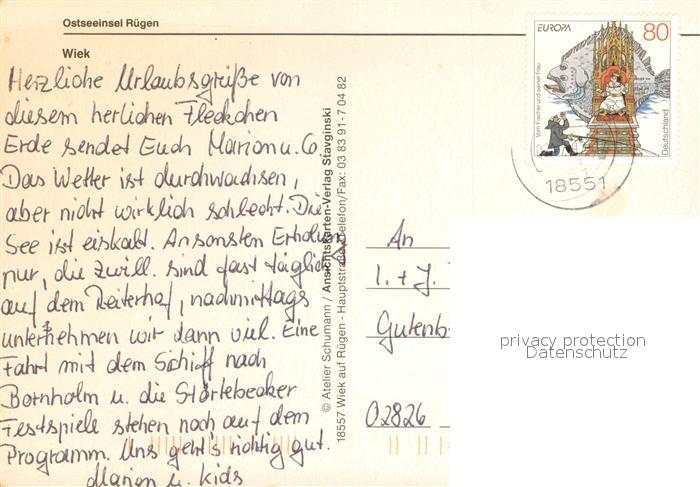 Ostseeinsel Rügen
Wiek
Herzliche Urlaubsgrüße von
diesem herlichen Fleckchen
Erde sendet Euch Marion u. Co.
Das Wetter ist durchwachsen,
aber nicht wirklich schlecht. Die
See ist eiskalt. Ansonsten Erholung
pur, die zwill. sind fast täglich
auf dem Reiterhof, nachmittags
unternehmen wir dann viel. Eine
Fahrt mit dem Schiff nach
Bornholm u. die Störtebecker
Festspiele stehen noch auf dem
Programm. Uns geht's richtig gut.
Marion u. Kids
© Atelier Schumann / Ansichtskarten-Verlag Stavginski
18557 Wiek auf Rügen - Hauptstraße Telefon/Fax: 03 83 91-7 04 82
EUROPA
80
Vom Fischer und seiner Frau
Deutschland
18551
An
I. + J.
Gutenb
02826
privacy protection
Datenschutz